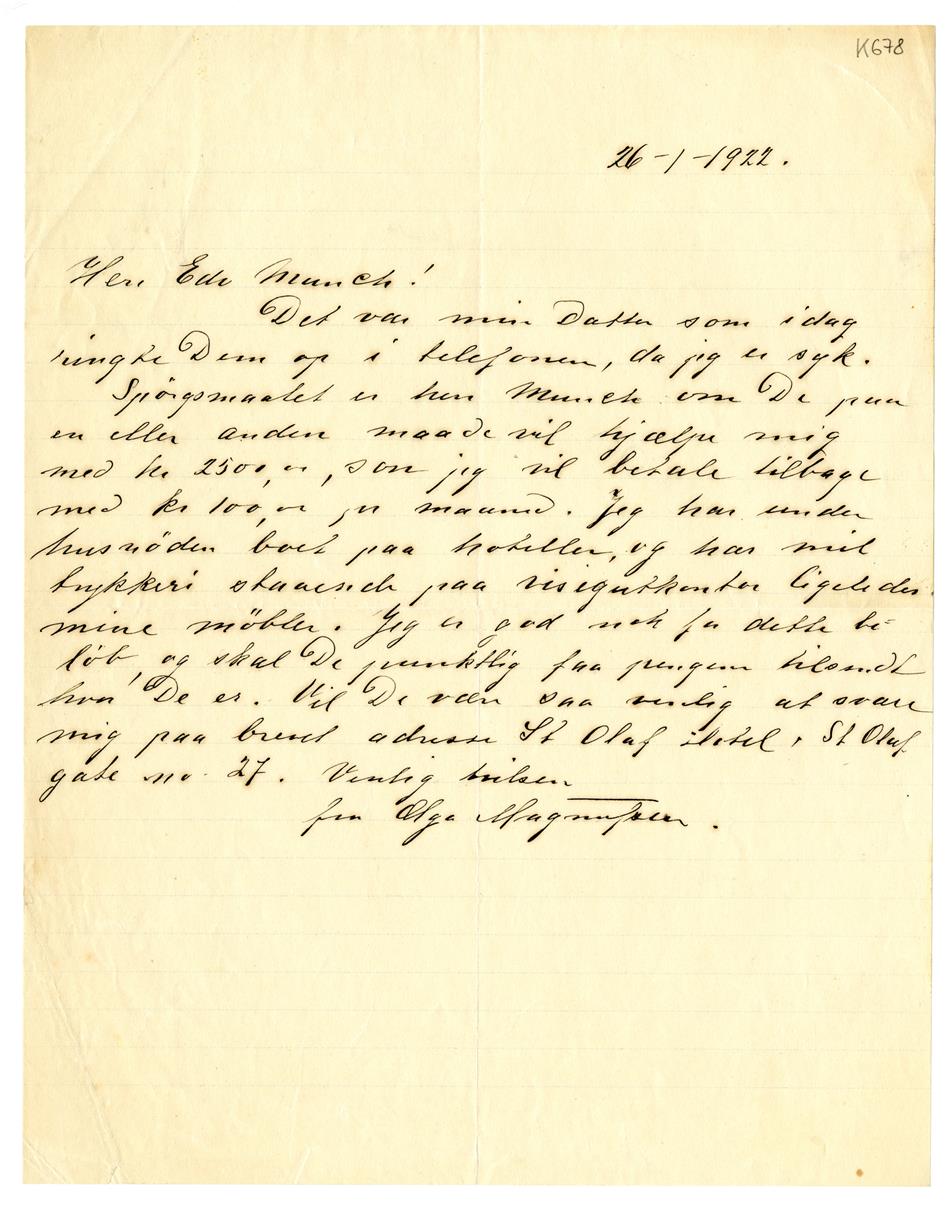 K678
26-1-1922.
Herr Edv Munch!
Det var min Datter som idag
ringte Dem op i telefonen, da jeg er syk.
Spörgsmaalet er herr Munch om De paa
en eller anden maade vil hjælpe mig
med kr 2500,00, som jeg vil betale tilbage
med kr 100,00 pr maaned. Jeg har under
husnöden boet paa hoteller, og har mit
trykkeri staaende paa visergutkontor ligeledes
mine möbler. Jeg er god nok for dette be-
löb, og skal De punktlig faa pengene tilsendt
hvor De er. Vil De være saa venlig at svare
mig paa brevet adresse St Olaf Hotel, St Olaf
gate no. 27. Venlig hilsen
fra Olga Magnussen.